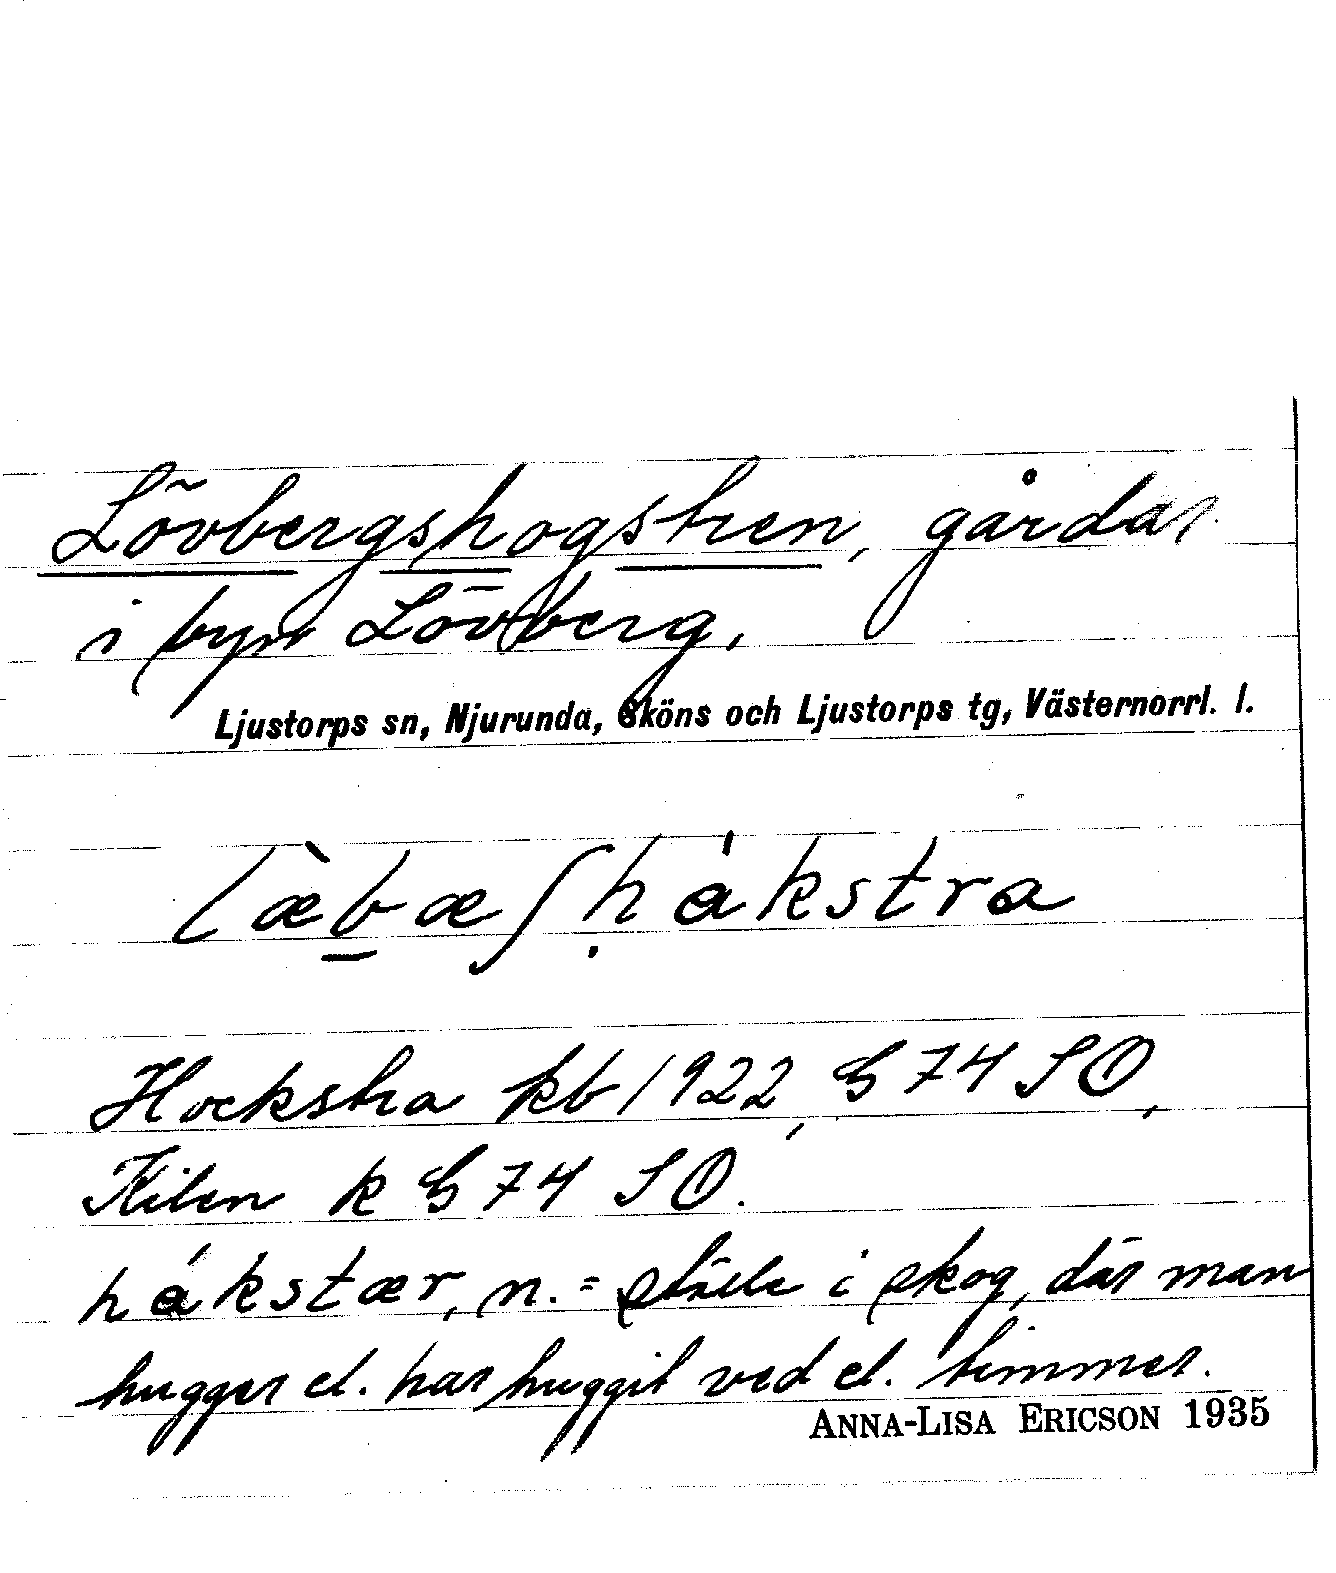 Lövbergshogstren, gårdar
i byn Lövberg,
Ljustorps sn, Njurunda, Sköns och Ljustorps tg, Västernorrl. l.
læ̀b̲æʃḥákstra
Hockstra kb 1922, G 74 SO,
Kilen k G 74 SO.
hákstær, n. = ställe i skog, där man
hugger el. har huggit ved el. timmer.
ANNA-LISA ERICSON 1935